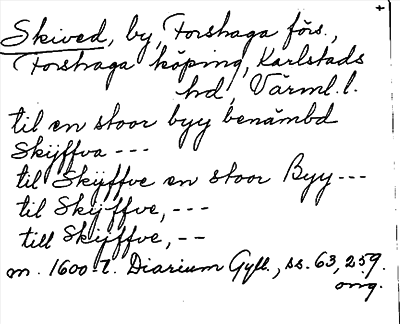 +
Skived, by, Forshaga förs.,
Forshaga köping, Karlstads
hd, Värml. l.
til en stoor byy benämbd
Skijffva ---
til Skijffve en stoor Byy ---
til Skijffve, ---
till Skijffve, --
m. 1600-t. Diarium Gyll., ss. 63, 259.
omg.